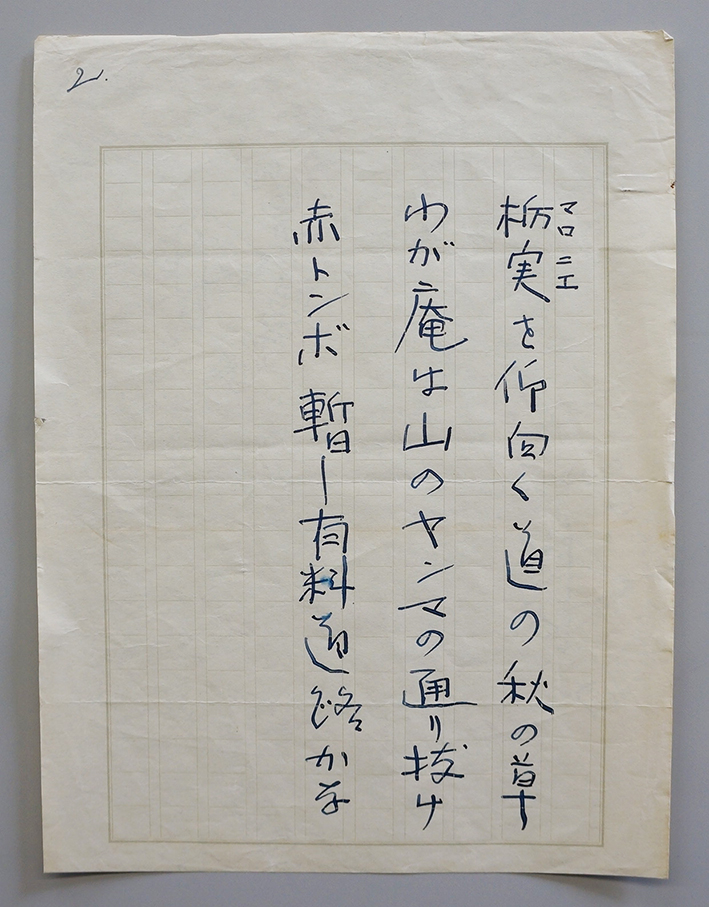 2.
マロニエ
栃実を仰向く道の秋の草
わが庵は山のヤンマの通り抜け
赤トンボ暫し有料道路かな